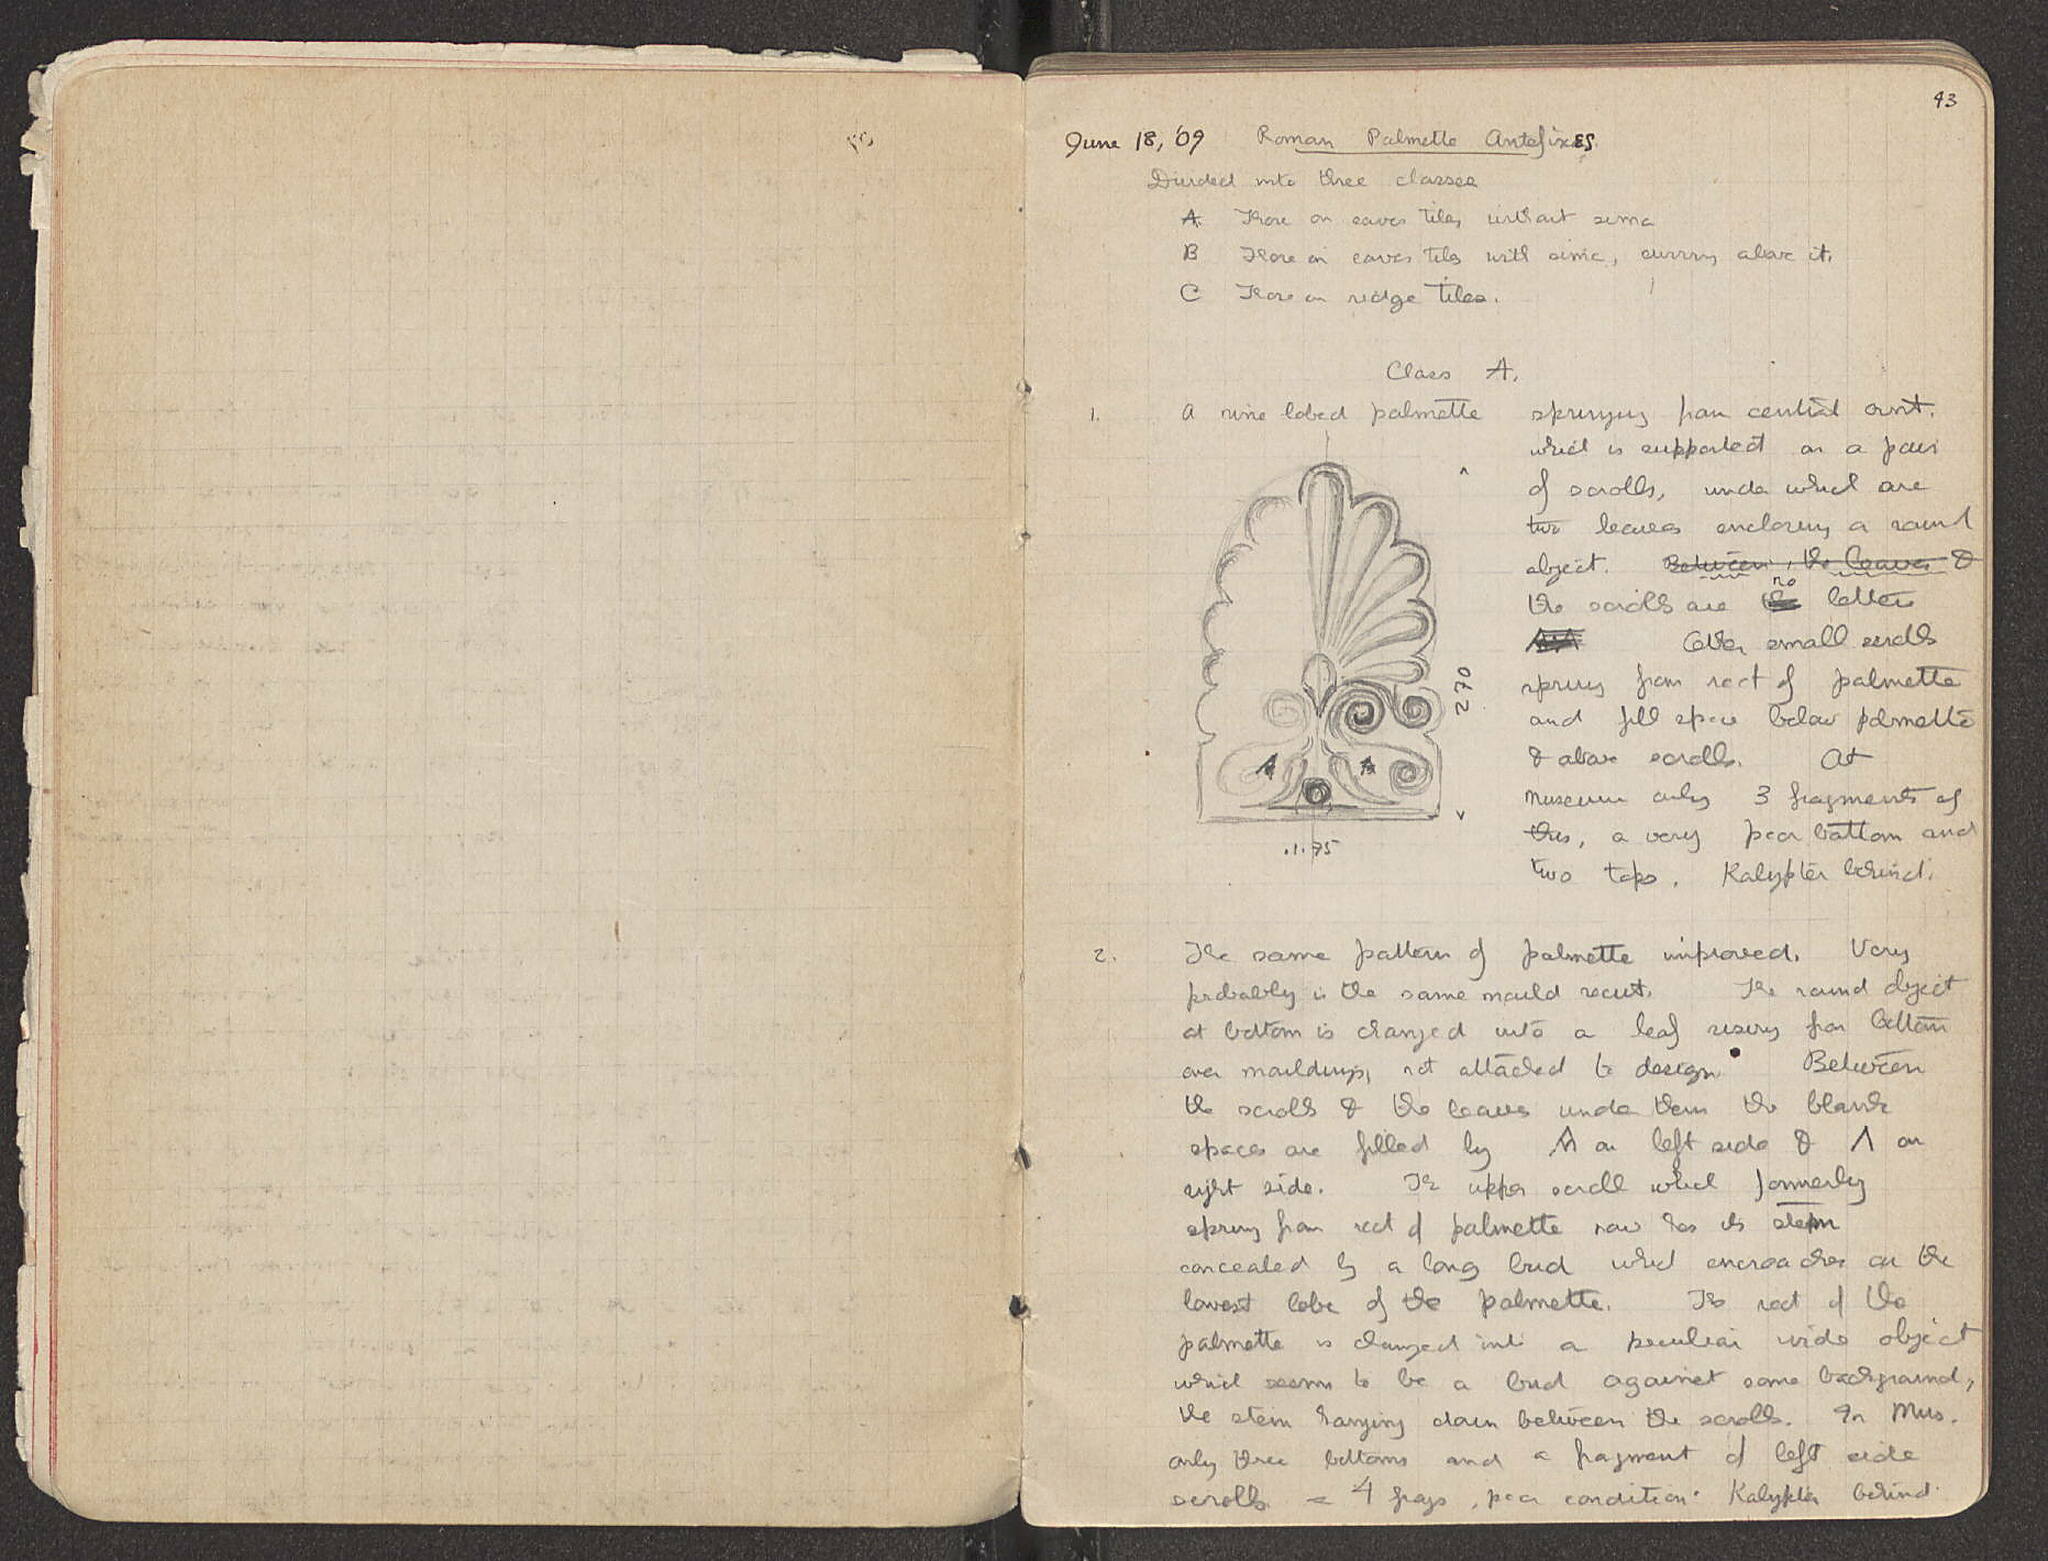 43
June 18, '09 Roman Palmette Antefixes.
Divided into three classes
A. Those on eaves tiles without sima
B Those on eaves tiles with sima, curving above it.
C Those on ridge tiles.
Class A.
1. A nine lobed palmette springing from central ornt.
which is supported on a pair
of scrolls, under which are
two leaves enclosing a round
object. Between the leaves &
the scrolls are no letters
Other small scrolls
spring from root of palmette
and fill space below palmette
& above scrolls. At
Museum only 3 fragments of
this, a very poor bottom and
two tops. Kalypter behind.
A A
270
.175
2. The same pattern of palmette improved. Very
probably is the same mould recut. The round object
at bottom is changed into a leaf rising from bottom
over mouldings, not attached to design. Between
the scrolls & the leaves under them the blank
spaces are filled by A on left side & Λ on
right side. The upper scroll which formerly
sprung from root of palmette now has its stem
concealed by a long bud which encroaches on the
lowest lobe of the palmette. The root of the
palmette is changed into a peculiar wide object
which seems to be a bud against some background,
the stem hanging down between the scrolls. In Mus.
only three bottoms and a fragment of left side
scrolls = 4 frags, poor condition. Kalypter behind.